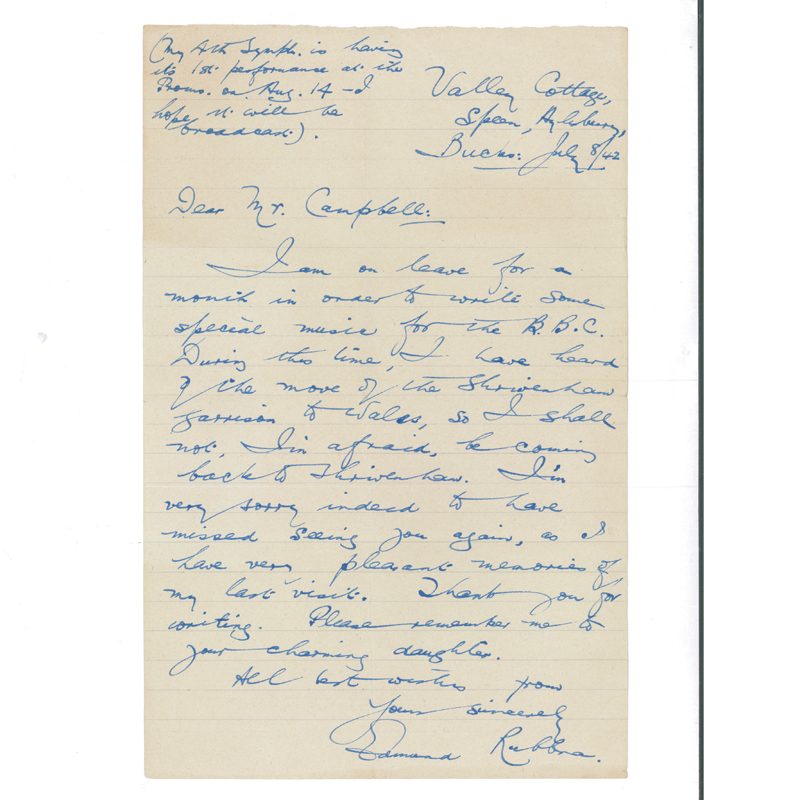 (My 4th Symph. is having
its 1st performance at the
Proms. on Aug. 14 - I
hope it will be
broadcast).
Valley Cottage,
Speen, Aylesbury,
Bucks: July 8/42
Dear Mr. Campbell:
I am on leave for a
month in order to write some
special music for the B.B.C.
During this time, I have heard
of the move of the Shrivenham
garrison to Wales, so I shall
not, I'm afraid, be coming
back to Shrivenham. I'm
very sorry indeed to have
missed seeing you again, as I
have very pleasant memories of
my last visit. Thank you for
writing. Please remember me to
your charming daughter.
All best wishes from
Yours sincerely
Edmund Rubbra.